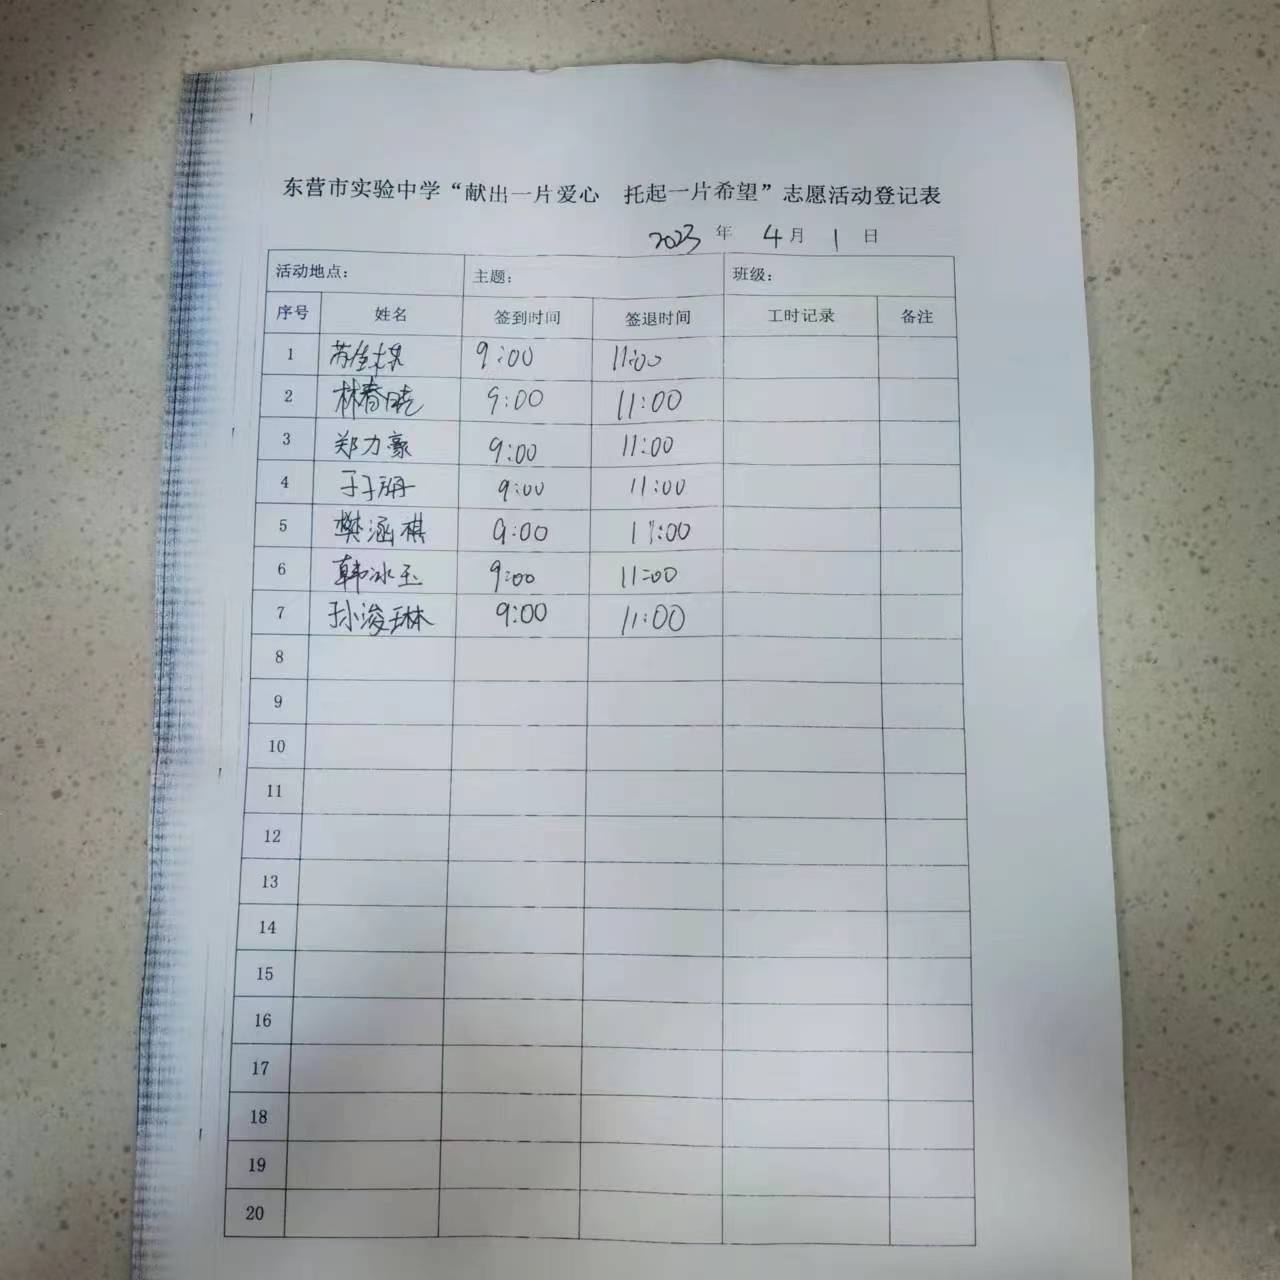 东营市实验中学“献出一片爱心 托起一片希望”志愿活动登记表
2023 年 4 月 1 日
活动地点： 主题： 班级：
序号 姓名 签到时间 签退时间 工时记录 备注
1 9:00 11:00
2 林春晓 9:00 11:00
3 郑力豪 9:00 11:00
4 9:00 11:00
5 樊涵棋 9:00 11:00
6 韩冰玉 9:00 11:00
7 孙浚琳 9:00 11:00
8
9
10
11
12
13
14
15
16
17
18
19
20